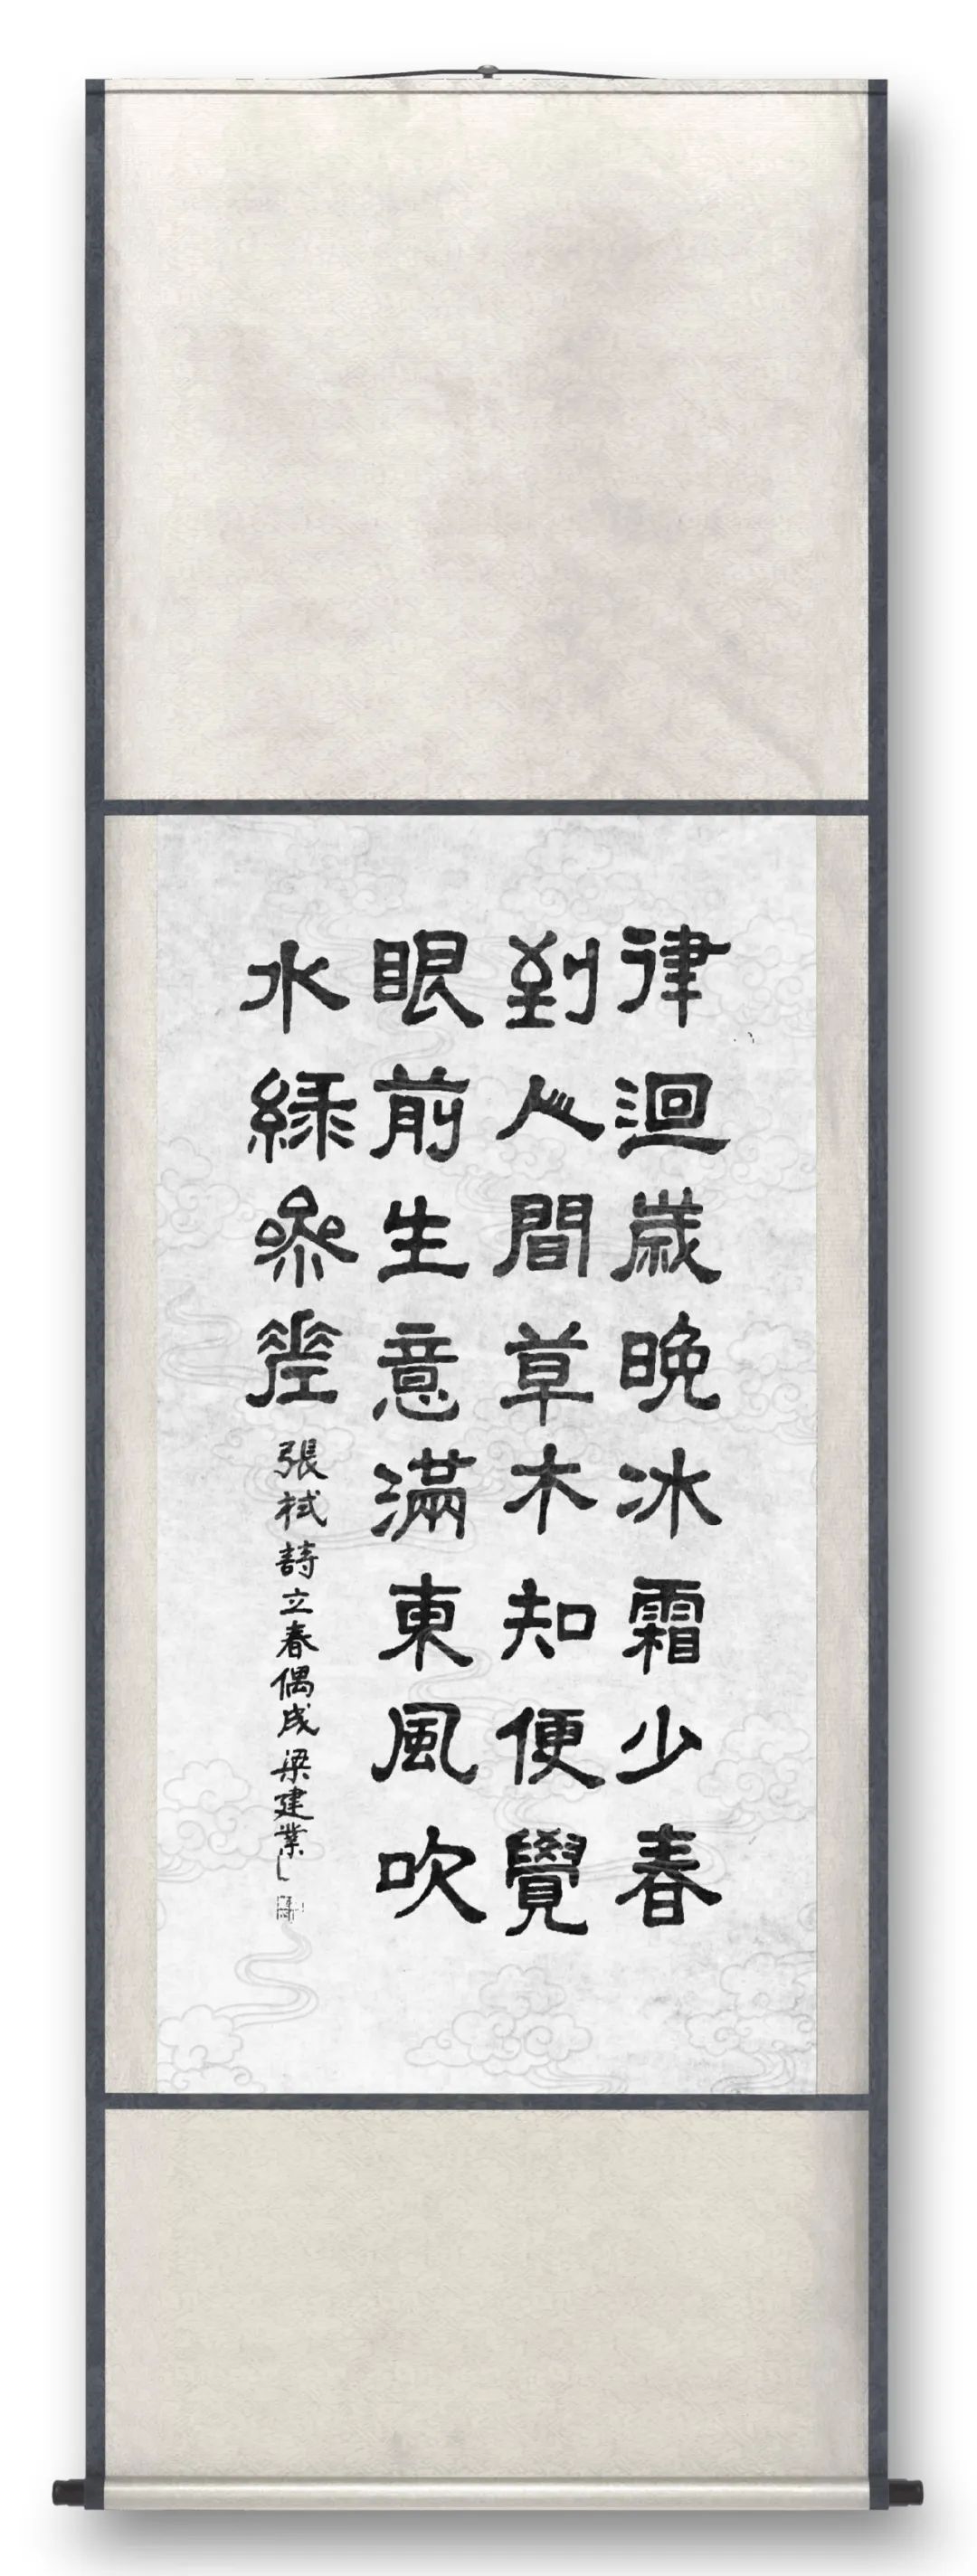 律迴歲晚冰霜少春
到人間草木知便覺
眼前生意滿東風吹
水綠參差
張栻詩立春偶成梁建業